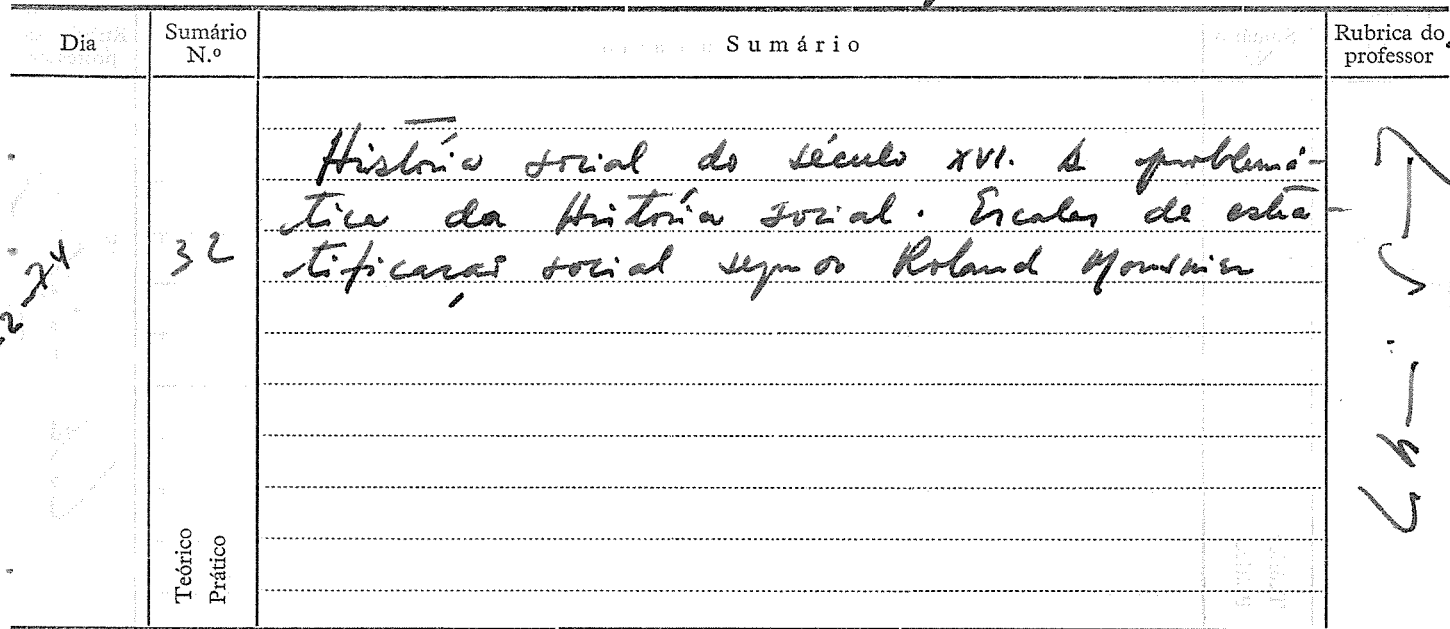 Dia
Sumário N.º
Sumário
Rubrica do professor
História social do século XVI. A problemá-
tica da História social. Escalas de estra-
32
tificação social segundo Roland Mousnier
Teórico
Prático